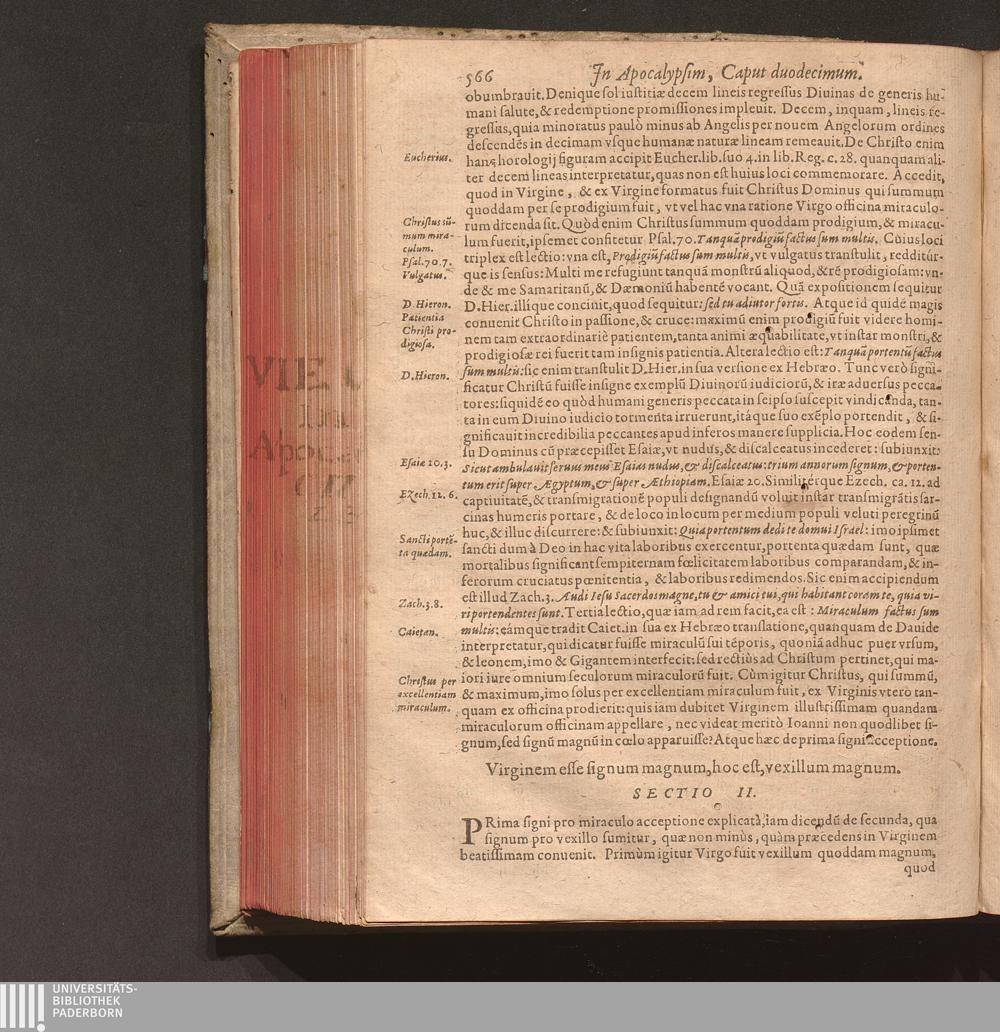 566 In Apocalypsim, Caput duodecimum.
obumbrauit. Denique sol iustitiæ decem lineis regressus Diuinas de generis hu-
mani salute, & redemptione promissiones impleuit. Decem, inquam, lineis re-
gressus, quia minoratus paulò minus ab Angelis per nouem Angelorum ordines
descendēs in decimam vsque humanæ naturæ lineam remeauit. De Christo enim
Eucherius.
hanc horologij figuram accipit Eucher. lib. suo 4. in lib. Reg. c. 28. quanquam ali-
ter decem lineas interpretatur, quas non est huius loci commemorare. Accedit,
quod in Virgine, & ex Virgine formatus fuit Christus Dominus qui summum
quoddam per se prodigium fuit, vt vel hac vna ratione Virgo officina miraculo-
Christus sū-
mum mira-
culum.
Psal. 70. 7.
Vulgatus.
rum dicenda sit. Quòd enim Christus summum quoddam prodigium, & miracu-
lum fuerit, ipsemet confitetur Psal. 70. Tanquā prodigiū factus sum multis. Cuius loci
triplex est lectio: vna est, Prodigiū factus sum multis, vt vulgatus transtulit, redditúr-
que is sensus: Multi me refugiunt tanquā monstrū aliquod, & rē prodigiosam: vn-
de & me Samaritanū, & Dæmoniū habentē vocant. Quā expositionem sequitur
D. Hieron.
Patientia
Christi pro-
digiosa.
D. Hier. illique concinit, quod sequitur: sed tu adiutor fortis. Atque id quidē magis
conuenit Christo in passione, & cruce: maximū enim prodigiū fuit videre homi-
nem tam extraordinariè patientem, tanta animi æquabilitate, vt instar monstri, &
prodigiosæ rei fuerit tam insignis patientia. Altera lectio est: Tanquā portentū factus
D. Hieron.
sum multis: sic enim transtulit D. Hier. in sua versione ex Hebræo. Tunc verò signi-
ficatur Christū fuisse insigne exemplū Diuinorū iudiciorū, & iræ aduersus pecca-
tores: siquidē eo quòd humani generis peccata in seipso suscepit vindicanda, tan-
ta in eum Diuino iudicio tormenta irruerunt, itáque suo exēplo portendit, & si-
gnificauit incredibilia peccantes apud inferos manere supplicia. Hoc eodem sen-
su Dominus cū præcepisset Esaiæ, vt nudus, & discalceatus incederet: subiunxit:
Esaiæ 20. 3.
Sicut ambulauit seruus meus Esaias nudus, & discalceatus: trium annorum signum, & porten-
tum erit super Ægyptum, & super Æthiopiam. Esaiæ 20. Similitérque Ezech. ca. 12. ad
Ezech. 12. 6.
captiuitatē, & transmigrationē populi designandū voluit instar transmigrātis sar-
cinas humeris portare, & de loco in locum per medium populi veluti peregrinū
huc, & illuc discurrere: & subiunxit: Quia portentum dedi te domui Israel: imo ipsimet
Sancti portē-
ta quædam.
sancti dum à Deo in hac vita laboribus exercentur, portenta quædam sunt, quæ
mortalibus significant sempiternam fœlicitatem laboribus comparandam, & in-
ferorum cruciatus pœnitentia, & laboribus redimendos. Sic enim accipiendum
est illud Zach. 3. Audi Iesu Sacerdos magne, tu & amici tui, qui habitant coram te, quia vi-
Zach. 3. 8.
ri portendentes sunt. Tertia lectio, quæ iam ad rem facit, ea est: Miraculum factus sum
Caietan.
multis: eámque tradit Caiet. in sua ex Hebræo translatione, quanquam de Dauide
interpretatur, qui dicatur fuisse miraculū sui tēporis, quoniā adhuc puer vrsum,
& leonem, imo & Gigantem interfecit: sed rectiùs ad Christum pertinet, qui ma-
Christus per
excellentiam
miraculum.
iori iure omnium seculorum miraculorū fuit. Cùm igitur Christus, qui summū,
& maximum, imo solus per excellentiam miraculum fuit, ex Virginis vtero tan-
quam ex officina prodierit: quis iam dubitet Virginem illustrissimam quandam
miraculorum officinam appellare, nec videat meritò Ioanni non quodlibet si-
gnum, sed signū magnū in cœlo apparuisse? Atque hæc de prima signi acceptione.
Virginem esse signum magnum, hoc est, vexillum magnum.
SECTIO II.
PRima signi pro miraculo acceptione explicatâ, iam dicendū de secunda, qua
signum pro vexillo sumitur, quæ non minùs, quàm præcedens in Virginem
beatissimam conuenit. Primùm igitur Virgo fuit vexillum quoddam magnum,
quod
UNIVERSITÄTS-
BIBLIOTHEK
PADERBORN